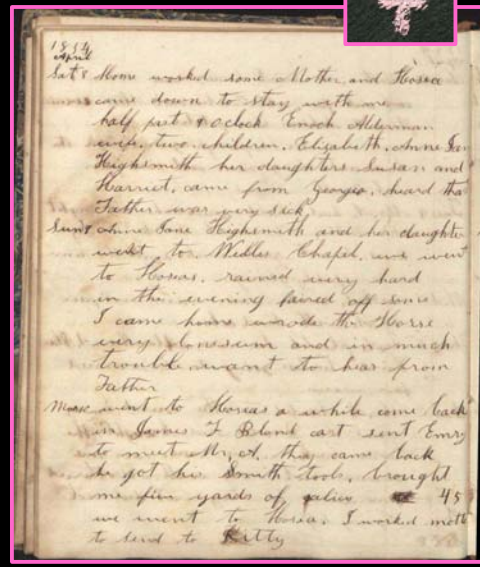 1894
April
Sat 8 Home worked some Mother and Hosea
came down to stay with me
half past 8 oclock Enoch Alderman
wife, two children, Elizabeth, Anne Jan
Highsmith her daughters Susan and
Harriet, came from Georgia, heard tha
Father was very sick
Sun 8 Anne Jane Highsmith and her daughte
went to Wells Chapel, we went
to Hoseas, rained very hard
in the evening faired off some
I came home wrode the Horse
very lonesum and in much
trouble want to hear from
Father
Mon went to Hoseas a while come back
in James F Bland cart sent Emry
to meet Mr. A. they came back
he got his Smith tools, brought
me five yards of calico 45
we went to Hosea. I worked
to send to Kitty